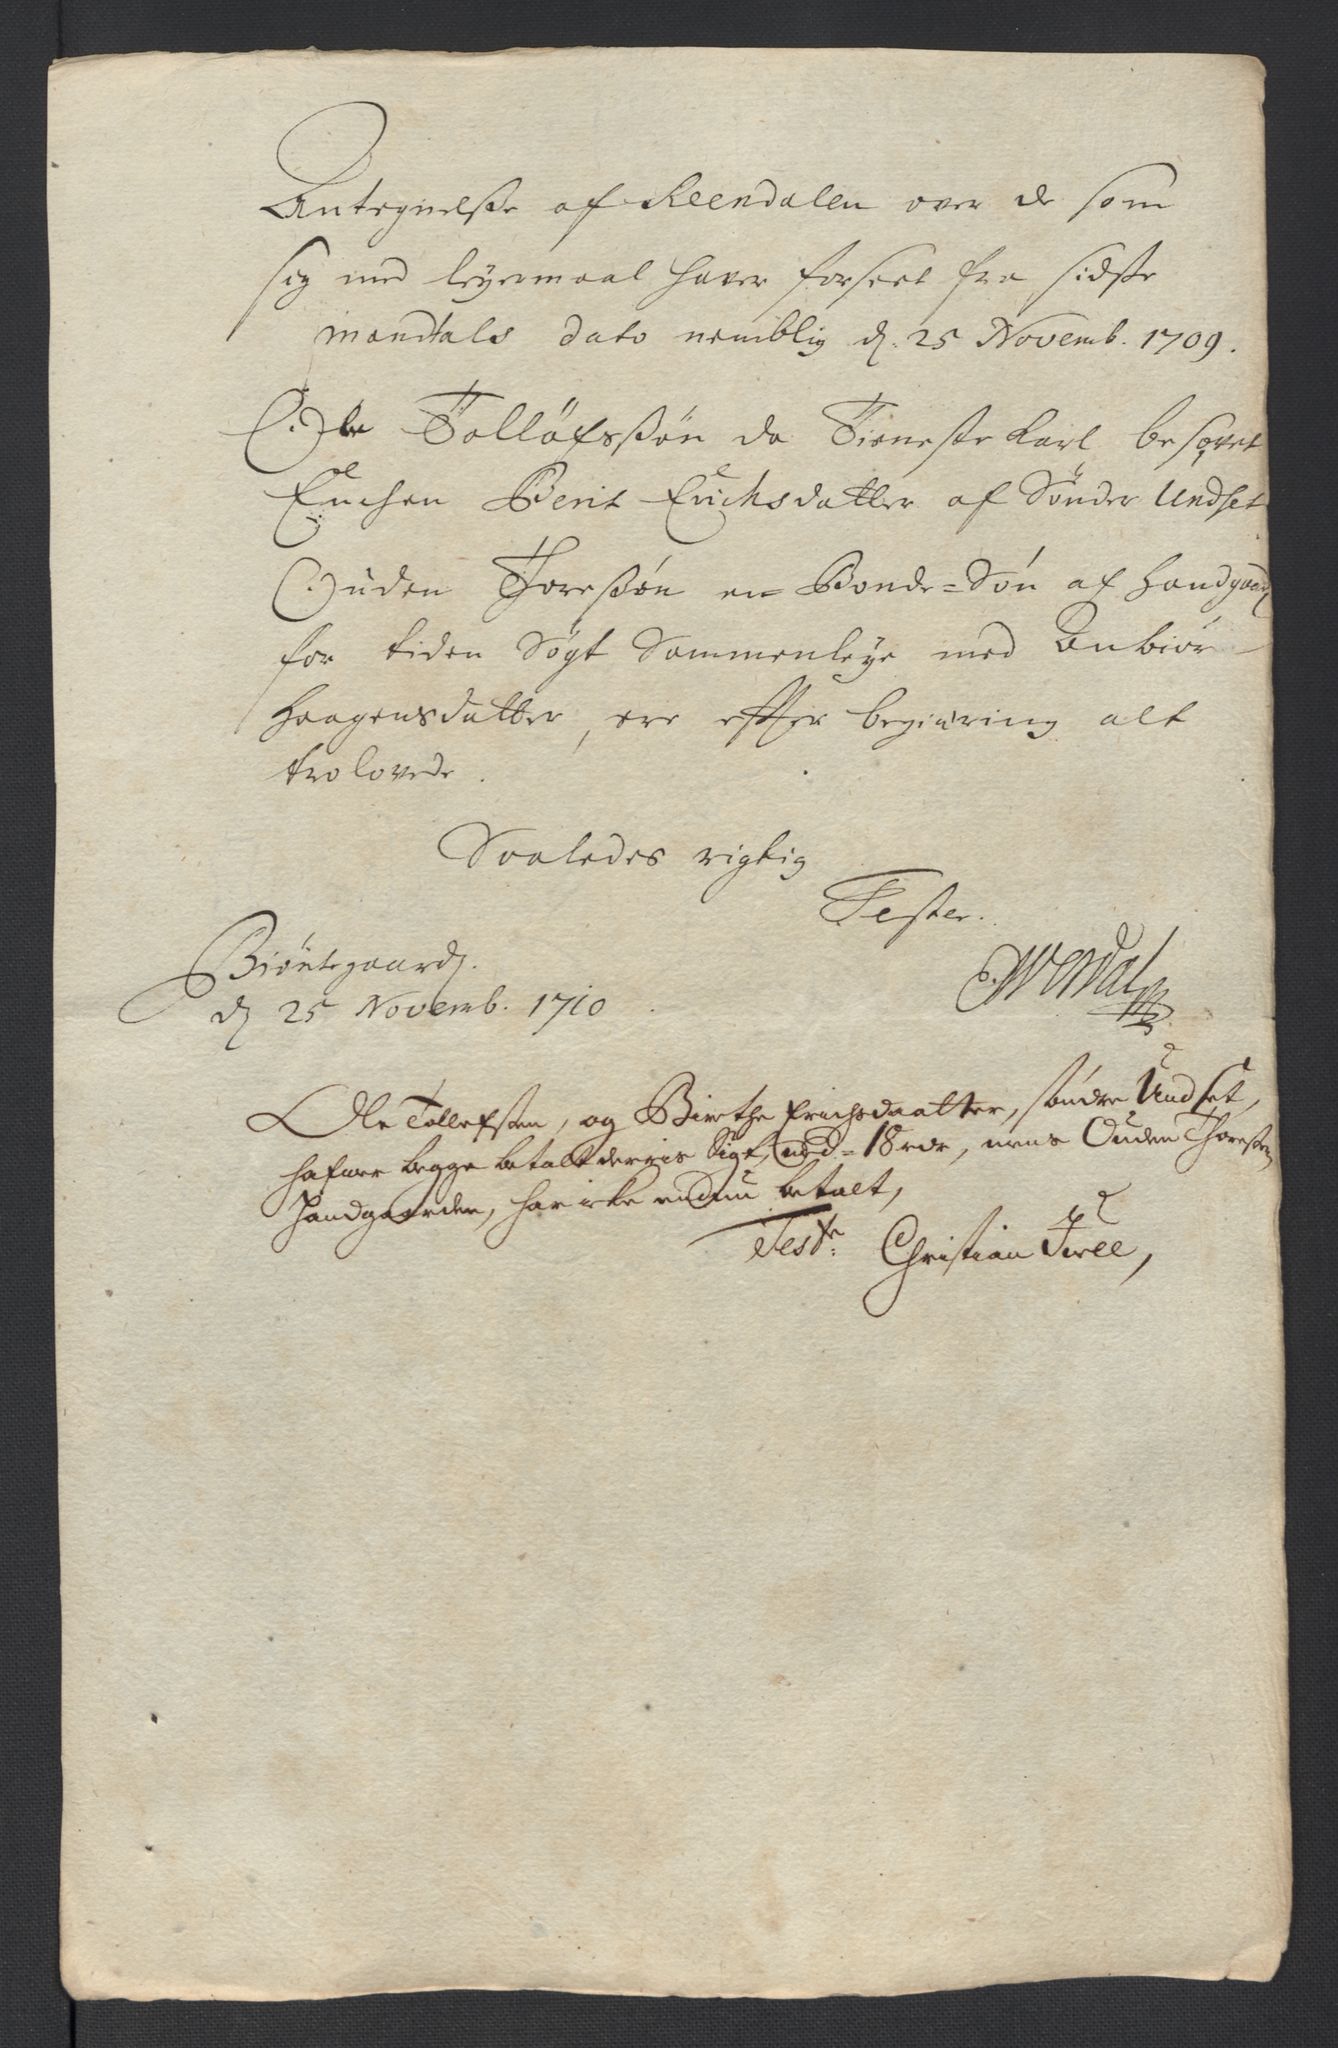 Antegnelsse af Reendalen over de som
sig med leyermaal haver forseet fra sidste
mandtals dato nemblig d. 25 Novemb. 1709.
Ole Tolløfssøn da Tieneste Karl besovet
Enchen Berit Erichsdatter af Sønder Undset
Ouden Thoressøn en Bonde-Søn af Handgaard
for tiden søgt Sammenleye med Anbiør
Haagensdatter, ere efter begiæring alt
trolovede.
Saaledes rigtig
Tester.
Biøntegaard
d 25 Novemb. 1710
Ole Tollefsten, og Birethe Erichsdaatter, søndre Undset,
hafuer begge betalt derris Sigt, med = 18 rdr, mens Ouden Thoresten
Handgaarden, har icke endnu betalt,
Test: Christian